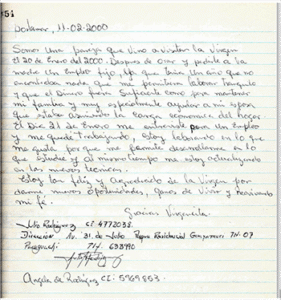 351
11-02-2000
Somos una pareja que vino a visitar la Virgen
el 20 de Enero del 2000. Despues de orar y pedirle a la
madre un Empleo fijo, ya que tenia un año que no
encontraba nada que me permitiera laborar tranquilo
y que el Dinero fuera suficiente para mantener
mi familia y muy especialmente ayudar a mi esposa
que estaba asumiendo la carga economica del hogar.
El Dia 21 de Enero me para un Empleo
y me quede Trabajando, Estoy laborando en lo que
me gusta por que me permite desarrollarme en lo
que Estudié y al mismo tiempo me estoy actualizando
en las nuevas tecnicas.
Estoy tan feliz y agradecido de la Virgen por
darme nuevas oportunidades, ganas de Vivir y
mi fé.
Gracias Virgencita.
Julio Rodriguez CI: 4772038.
Direccion Av. 31 de Julio. Residencial TN-07
Tlf.
Angela de Rodriguez CI: 5969853